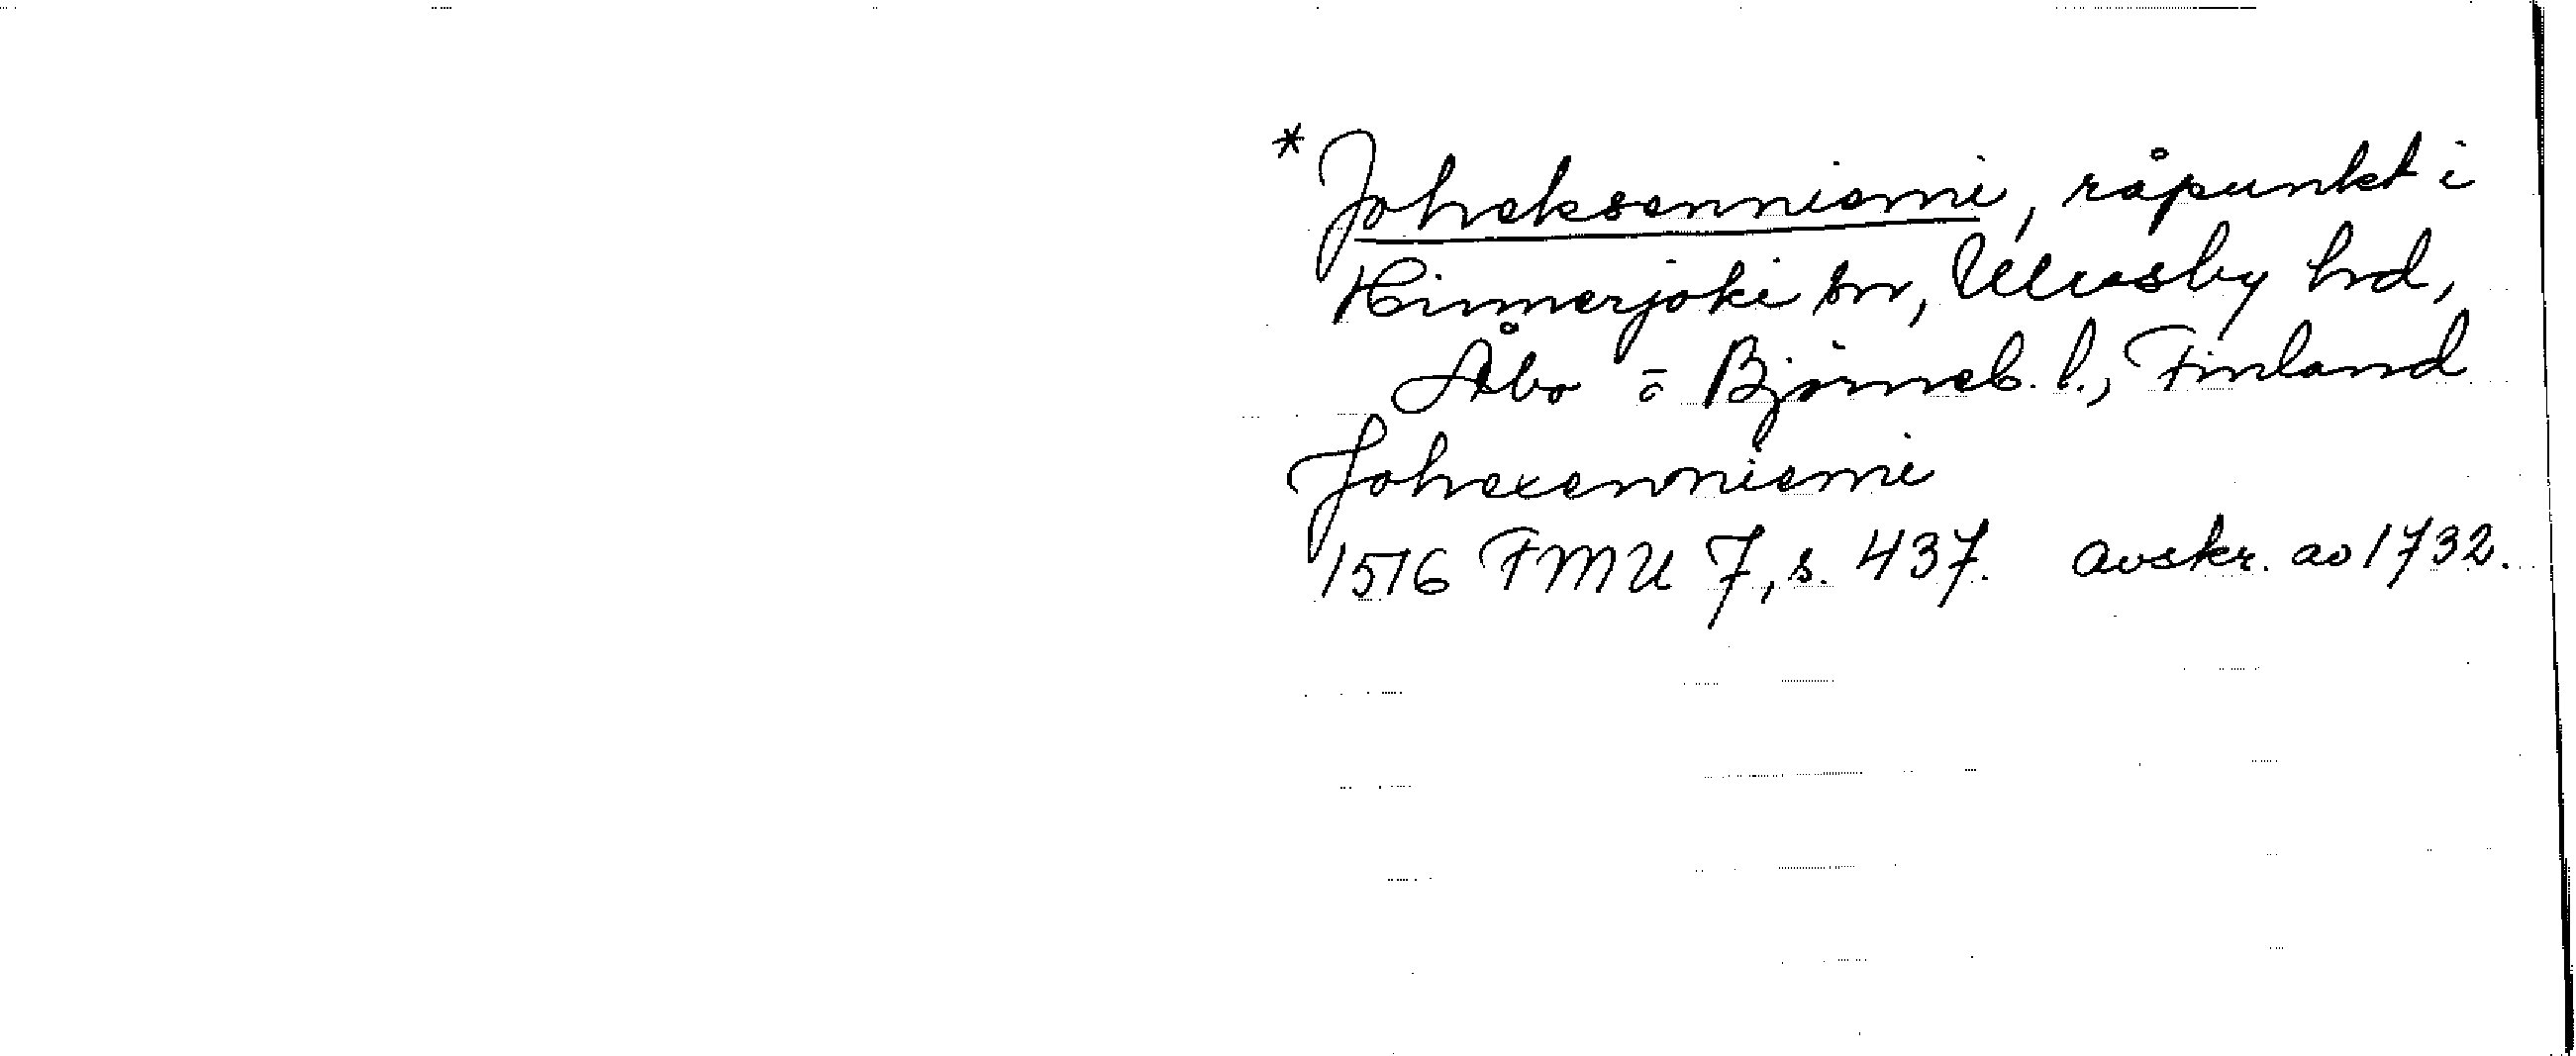 * Joheksenniemi, råpunkt i
Hinnerjoki sn, Ulvsby hd,
Åbo o Björneb. l., Finland
Johexenniemi
1516 FMU 7, s. 437. avskr. av 1732.